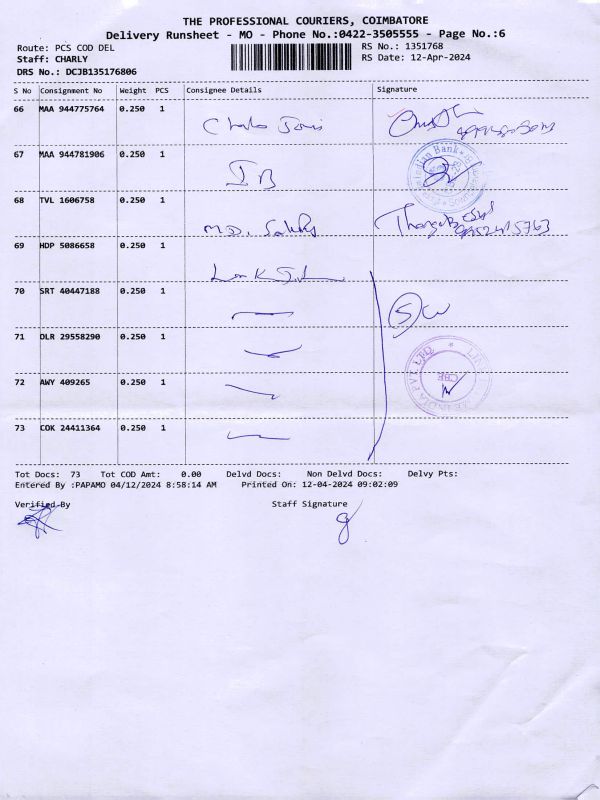 THE PROFESSIONAL COURIERS, COIMBATORE
Delivery Runsheet - MO - Phone No.:0422-3505555 - Page No.:6
Route: PCS COD DEL RS No.: 1351768
Staff: CHARLY RS Date: 12-Apr-2024
DRS No.: DCJB135176806
S No Consignment No Weight PCS Consignee Details Signature
66 MAA 944775764 0.250 1
67 MAA 944781906 0.250 1 IB
Indian Bank
68 TVL 1606758 0.250 1 M.D.
69 HDP 5086658 0.250 1
70 SRT 40447188 0.250 1 SW
71 DLR 29558290 0.250 1
72 AWY 409265 0.250 1
INDIA PVT LTD
CBE
73 COK 24411364 0.250 1
Tot Docs: 73 Tot COD Amt: 0.00 Delvd Docs: Non Delvd Docs: Delvy Pts:
Entered By :PAPAMO 04/12/2024 8:58:14 AM Printed On: 12-04-2024 09:02:09
Verified By Staff Signature